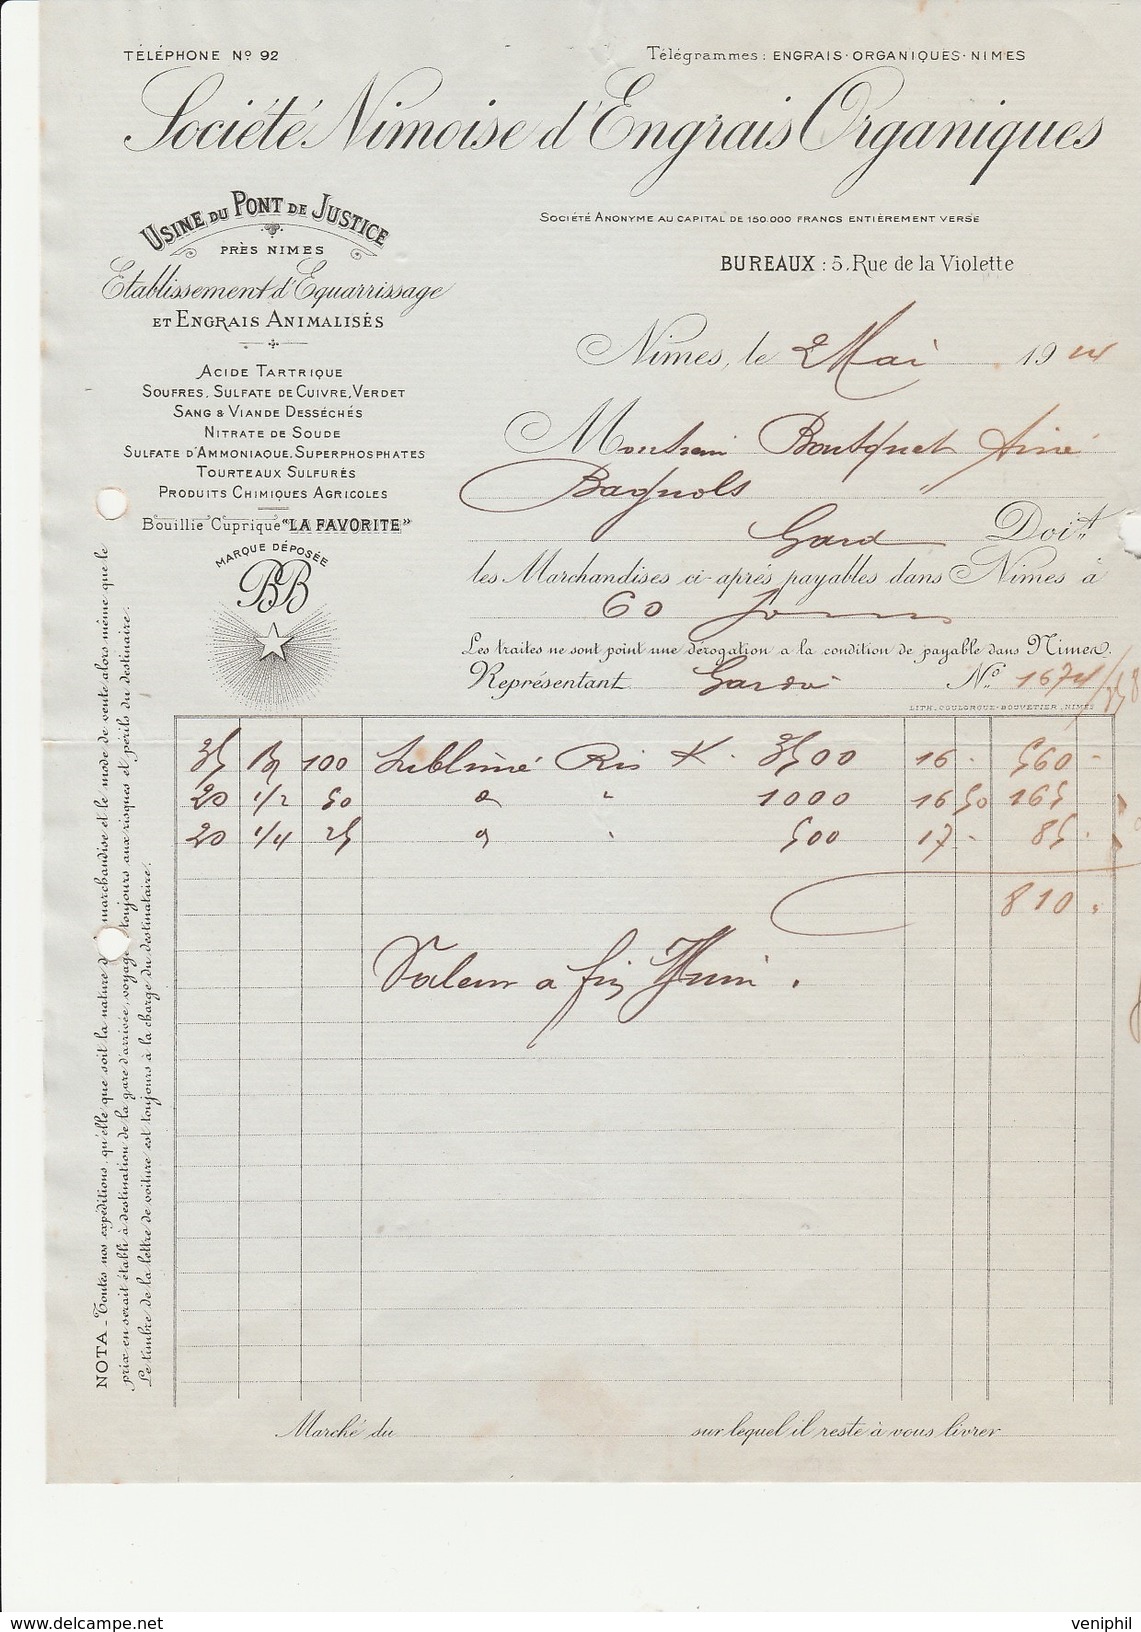 TÉLÉPHONE Nº 92
Télégrammes : ENGRAIS-ORGANIQUES-NIMES
Société Nimoise d'Engrais Organiques
USINE DU PONT DE JUSTICE
PRÈS NIMES
Etablissement d'Equarrissage
ET ENGRAIS ANIMALISÉS
SOCIÉTÉ ANONYME AU CAPITAL DE 150.000 FRANCS ENTIÈREMENT VERSÉ
BUREAUX : 5, Rue de la Violette
Nimes, le 2 Mai 1914
ACIDE TARTRIQUE
SOUFRES, SULFATE DE CUIVRE, VERDET
SANG & VIANDE DESSÉCHÉS
NITRATE DE SOUDE
SULFATE D'AMMONIAQUE, SUPERPHOSPHATES
TOURTEAUX SULFURÉS
PRODUITS CHIMIQUES AGRICOLES
Bouillie Cuprique "LA FAVORITE"
MARQUE DÉPOSÉE
BB
Monsieur Bousquet Aimé
Bagnols "
Gard Doit
les Marchandises ci-après payables dans Nimes à
60 jours
Les traites ne sont point une dérogation a la condition de payable dans Nimes.
Représentant Nº 1674
LITH. COULOROUE-BOUVETIER, NIMES
35 B/ 100 Sublimé Ris K. 3500 16 - 560 -
20 1/2 50 " " 1000 16 50 165
20 1/4 25 " " 500 17 - 85 -
810 "
Valeur a fin Juin.
NOTA _ Toutes nos expéditions, qu'elle que soit la nature d marchandise et le mode de vente alors même que le
prix en serait établi à destination de la gare d'arrivée, voyage toujours aux risques et périls du destinaire.
Le timbre de la lettre de voiture est toujours à la charge du destinataire.
Marché du
sur lequel il reste à vous livrer
veniphil